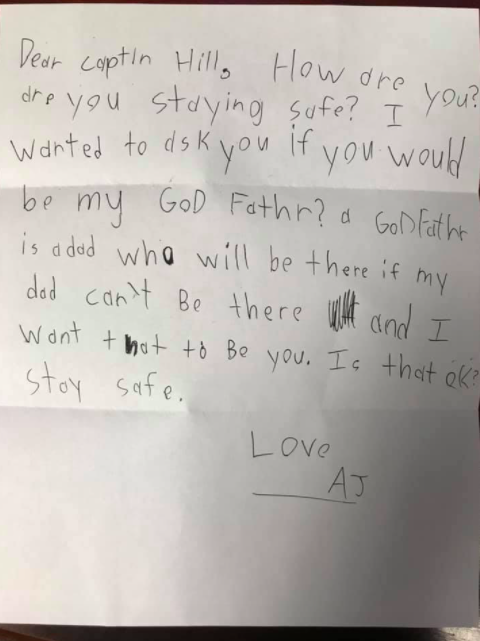 Dear captin Hill, How are you?
are you staying safe? I
wanted to ask you if you would
be my GoD Fathr? a GoDFathr
is a dad who will be there if my
dad can't Be there and I
want that to Be you. Is that ok?
stay safe.
Love
AJ